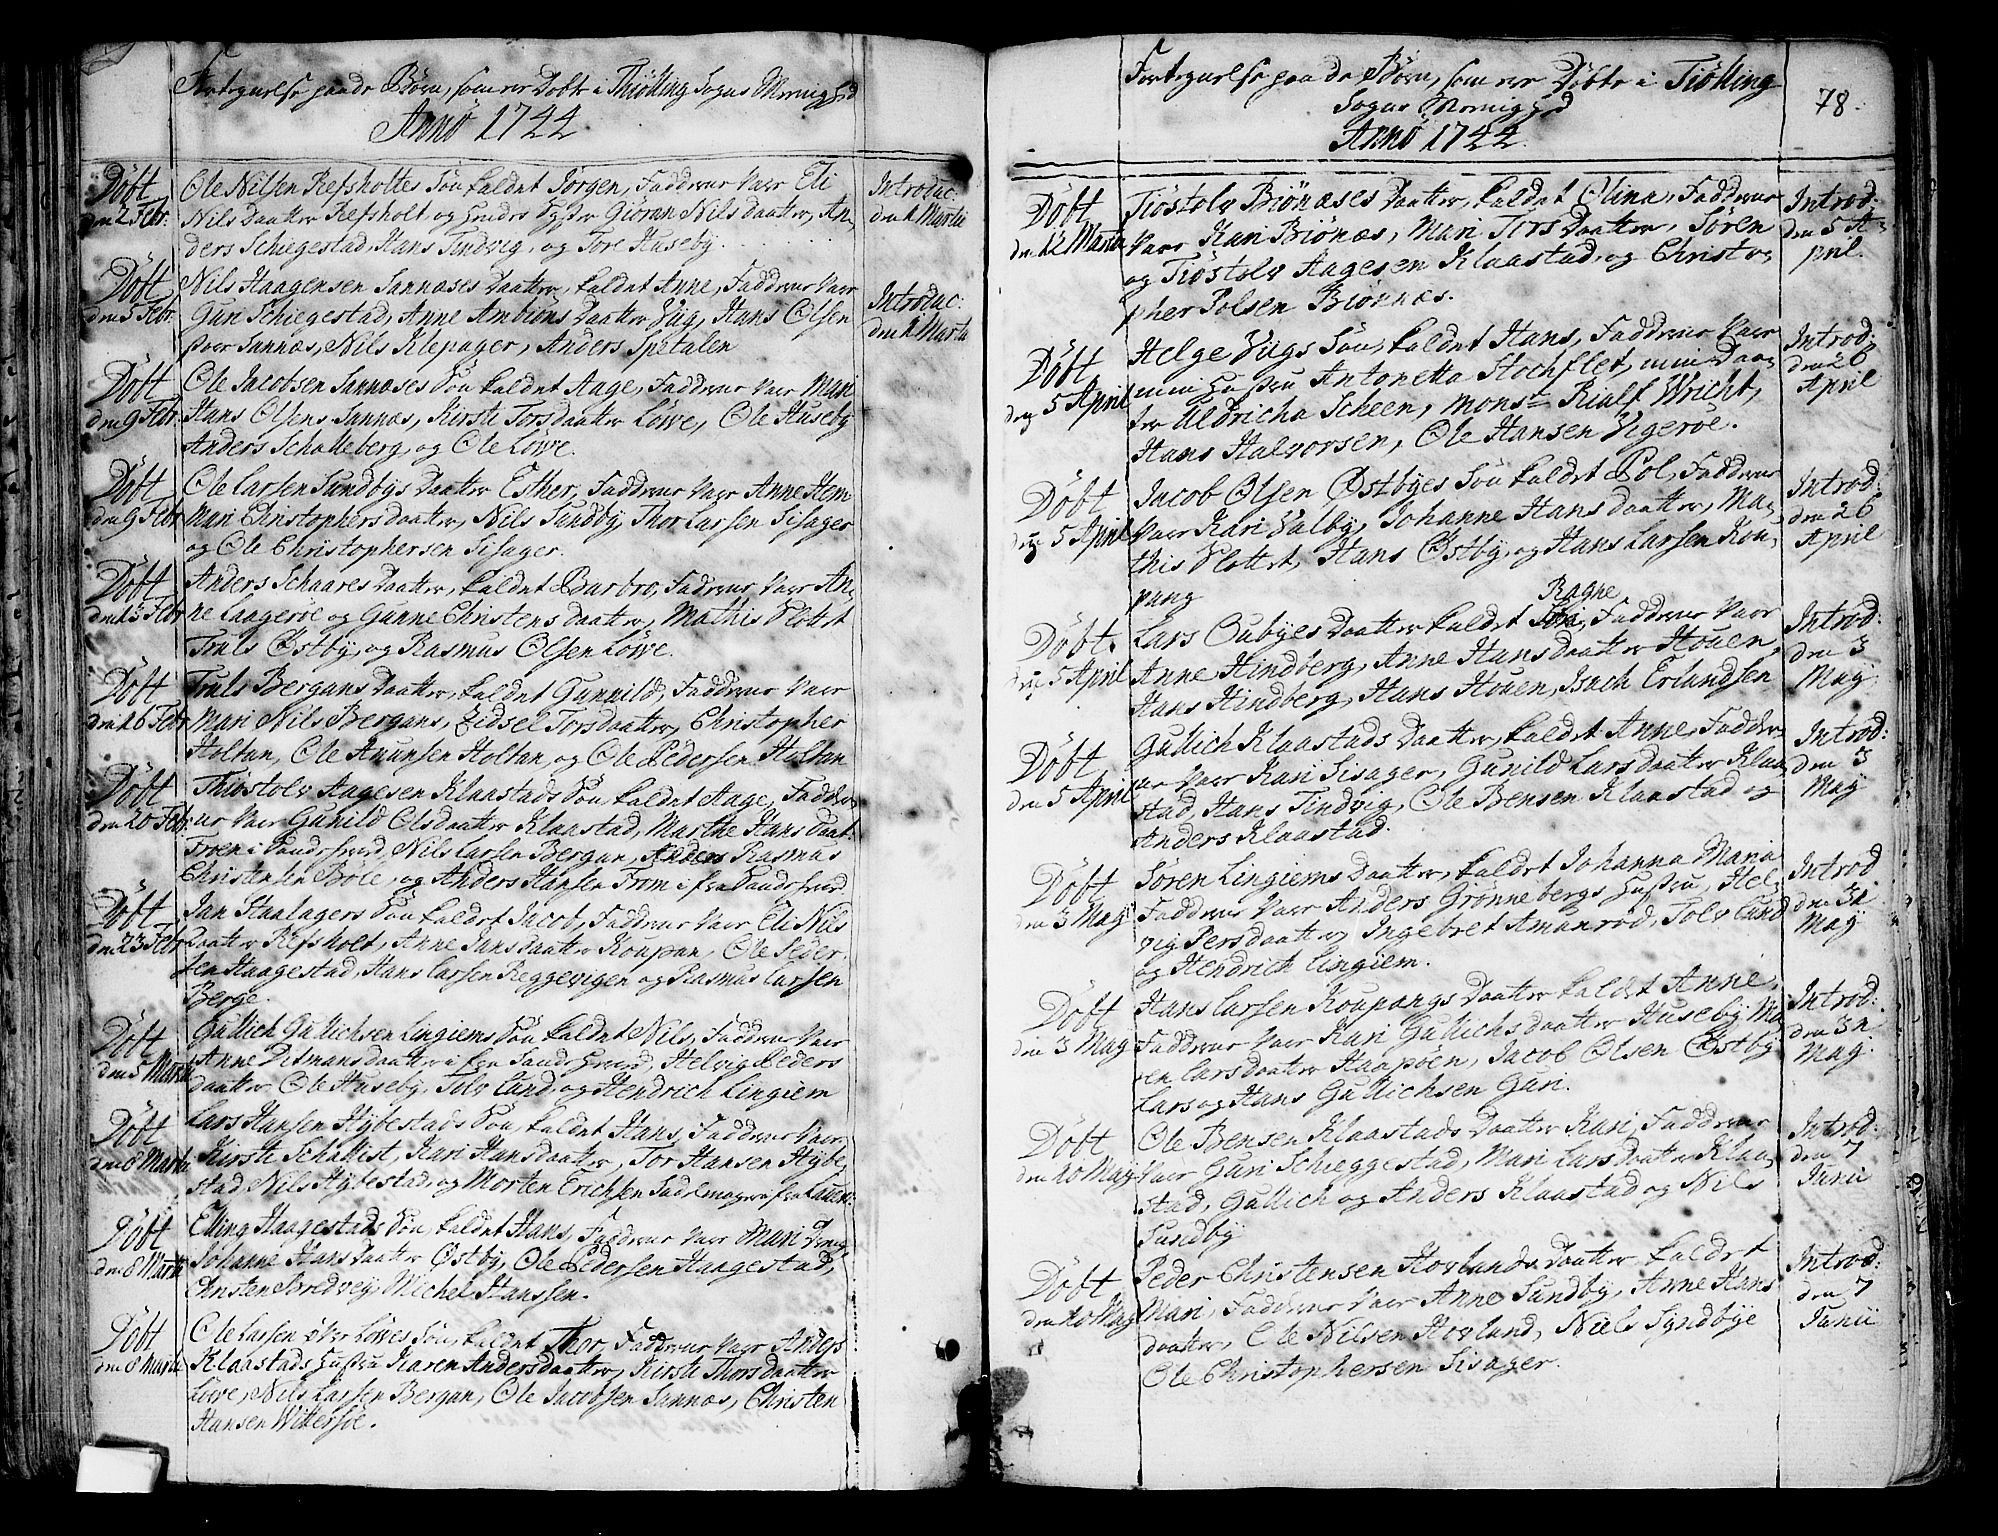 Fortegnelse paa de Børn, som ere Døbte i Thiølling Sogns Menighed
Anno 1744
Döbt
den 2 Febr:
Ole Nilsen Refsholtes Søn kaldet Jörgen, Faddrene vaer Eli
Nils Daatter Refsholt og hendes Syster Giöran Nils daatter, An,
ders Schiegestad, Hans Tindvig, og Tore Huseby.
Introduc:
den 1 Martii
Döbt
den 5 Febr.
Nils Haagensen Sannæses Daatter, kaldet Anne, Faddrene vaer
Guri Schiegestad, Anne Ambiöns Daatter Vug, Hans Olsen
Sannæs, Nils Klepager, Anders Spetalen
Introduc:
den 1 Martii
Döbt
den 9 Febr:
Ole Jacobsen Sannæses Søn kaldet Aage, Faddrene vaer Mari
Hans Olsens Sannæs, Kirste Torsdaatter Löwe, Ole Huseby
Anders Schalleberg, og Ole Löwe.
Döbt
den 9 Febr
Ole Larsen Sundbys Daatter Esther, Faddrene vaer Anne Hem
Mari Christophersdaatter, Nils Sundby, Thor Larsen Sisager
og Ole Christophersen Sisager.
Döbt
den 13 Febr
Anders Schaares Daatter, kaldet Barbro, Faddrene vaer An,
ne Laageröe og Gunne Christens daatter, Mathis Slottet
Truls Østby, og Rasmus Olsen Löwe.
Döbt
den 16 Febr
Truls Bergans Daatter, kaldet Gunnild, Faddrene vaer
Mari Nils Bergans, Zidsel Torsdaatter, Christopher
Holtan, Ole Amunsen Holtan og Ole Pedersen Holtan
Döbt
den 20 Febr:
Thiostolv Aagesen Klaastads Søn kaldet Aage, Fadder,
ne vaer Gunild Olsdaatter Klaastad, Marthe Hans daat.
Troen i Sandeherred, Nils Larsen Bergan, Rasmus
Christensen Böle, og Anders Hansen From i fra Sandeherred
Döbt
den 23 Febr
Jan Haalagers Søn kaldet Jacob, Faddrene vaer Eli Nils
daatter Refsholt, Anne Jansdaatter Koupan, Ole Peder,
sen Haagestad, Hans Larsen Reggevigen og Rasmus Larsen
Berge.
Döbt
den 5 Martii
Gullich Gullichsen Lingiems Søn kaldet Nils, Faddrene vaer
Anne Ditmansdaatter i fra Sandeherred, Helvig Peders
daatter, Ole Huseby, Tolv Lund, og Hendrich Lingiem
Döbt
den 8 Martii
Lars Hansen Hybestads Søn, kaldet Hans, Faddrene vaer
Kirste Schallist, Kari Hansdaatter, Tor Hansen Hybe,
stad, Nils Hybestad, og Morten Erichsen Sadelmager i fra Laur:
Döbt
den 8 Martii
Elling Haagestads Søn, kaldet Hans, Faddrene vaer Mari
Johanne Hans Daatter Østby, Ole Pedersen Haagestad,
Christen Bredvej, Michel Hanssen.
Döbt
den 8 Martii
Ole Larsen Löwes Søn, kaldet Thor, Faddrene vaer Anders
Klaastads Hustru Karen Andersdaatter, Kirste Thorsdaatter
Löwe, Nils Larsen Bergan, Ole Jacobsen Sannæs, Christen
Hansen Wittersöe.
Fortegnelse paa de Børn, som ere Döbte i Tiölling
Sogns Menighed
Anno 1744
78.
Döbt
den 12 Martii
Tiöstolv Biönæses Daatter, kaldet Olina, Faddrene
vaer Kari Biönæs, Mari Tors Daatter, Sören
og Tiöstolv Aagesen Klaastad, og Christo,
pher Polsen Biönnæs.
Introd:
den 5 A,
pril.
Döbt
den 5 April
Helge Vugs Søn, kaldet Hans, Faddrene vaer
min Hustru Antonetta Stochflet, min Daa,
ter Uldricha Scheen, mons Rialf Wricht,
Hans Halvorsen, Ole Hansen Vigeröe.
Introd,
den 26
April
Döbt
den 5 April
Jacob Olsen Østbyes Søn kaldet Pol, Faddrene
vaer Kari Valby, Johanne Hans daatter, Ma,
this Slottet, Hans Østby, og Hans Larsen Kou,
pang
Introd:
den 26
April
Döbt.
den 5 April
Ragne
Lars Oubyes Daatter kaldet Siri, Faddrene vaer
Anne Hindberg, Anne Hansdaatter Houen,
Hans Hindberg, Hans Houen, Isach Erlandsen
Introd:
den 3
Maÿ
Döbt
den 5 April
Gullich Klaastads Daatter, kaldet Anne, Fadder,
ne vaer Kari Sisager, Gunild Larsdaatter Klaa,
stad, Hans Tindvig, Ole Bensen Klaastad og
Anders Klaastad.
Introd:
den 3
Maÿ
Döbt
den 3 Maÿ
Sören Lingiems Daatter, kaldet Johanna Maria
Faddrene vaer Anders Grönnebergs Hustru, Hel,
vig Persdaatter, Ingebret Amunröd, Tolv Lund
og Hendrich Lingiem.
Introd
den 31
Maÿ
Döbt
den 3 Maÿ
Hans Larsen Koupangs Daatter kaldet Anne
Faddrene vaer Kari Gullichsdaatter Huseby, Ma,
ren Larsdaatter Haapöen, Jacob Olsen Østby
Lars og Hans Gullichsen Guri.
Introd:
den 31
Maÿ.
Döbt
den 10 Maÿ
Ole Bensen Klaastads Daatter Kari, Faddrene
vaer Guri Schieggestad, Mari Larsdaatter Klaa,
stad, Gullich og Anders Klaastad og Nils
Sundby
Introd:
den 7
Junii
Döbt
den 10 Maÿ
Peder Christensen Hovlands Daatter kaldet
Mari, Faddrene vaer Anne Sundby, Anne Hans
daatter, Ole Nilsen Hovland, Niels Syndbye
Ole Christophersen Sisager.
Introd:
den 7
Junii